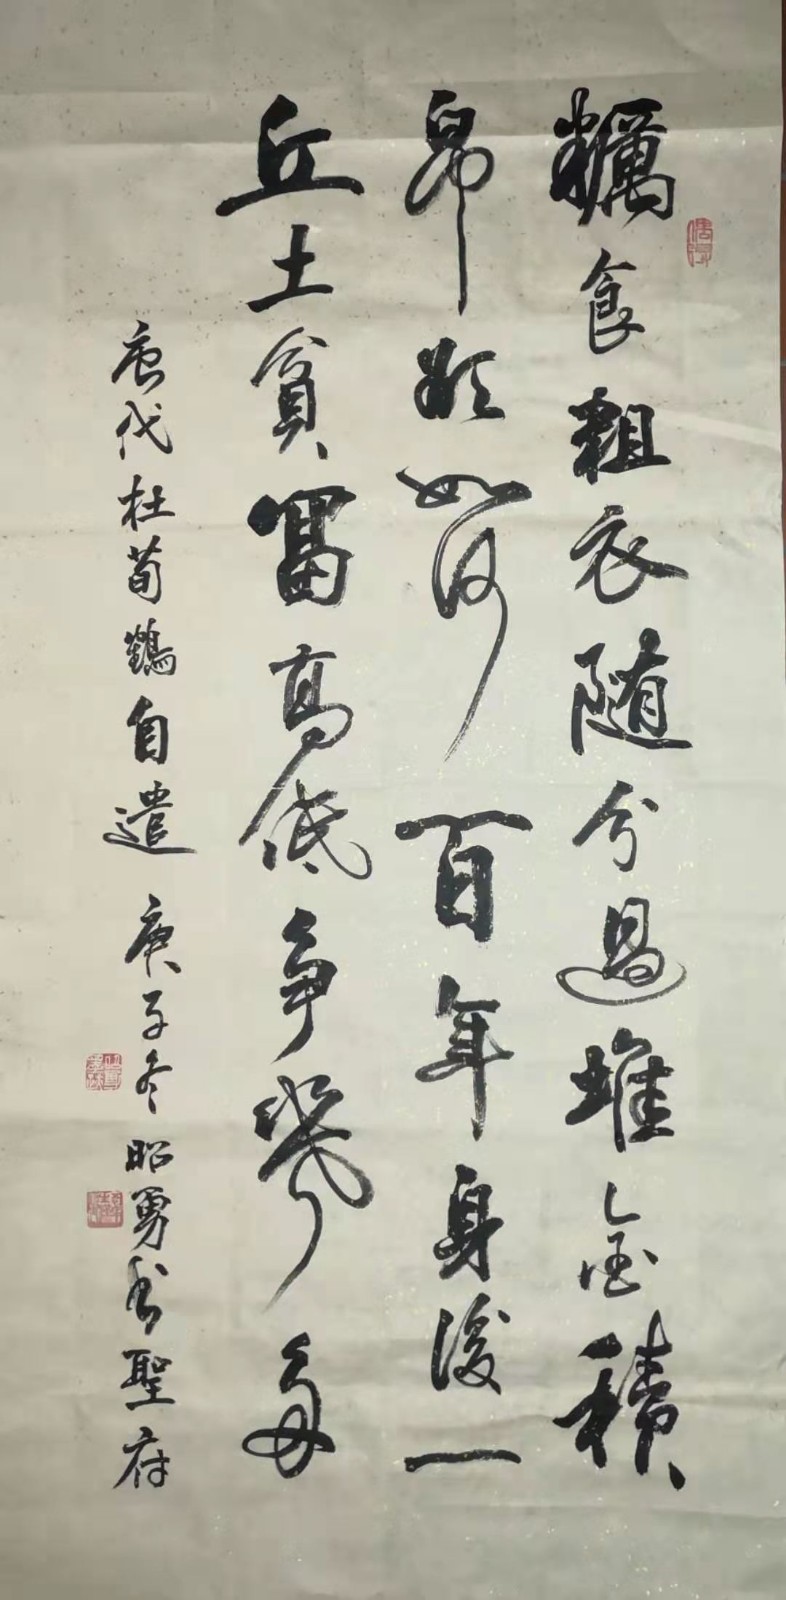 糲食粗衣随分過堆金積
帛欲如何百年身後一
丘土貧冨高低争幾多
唐代杜荀鶴自遣 庚子冬昭勇书聖府